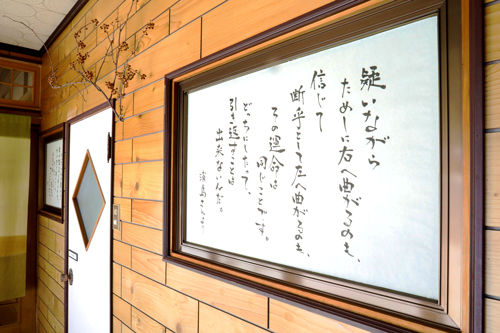 疑いながら
ためしに右へ曲がるのも、
信じて
断乎として左へ曲がるのも、
その運命は
同じことです。
どっちにしたって、
引き返すことは
出来ないんだ。